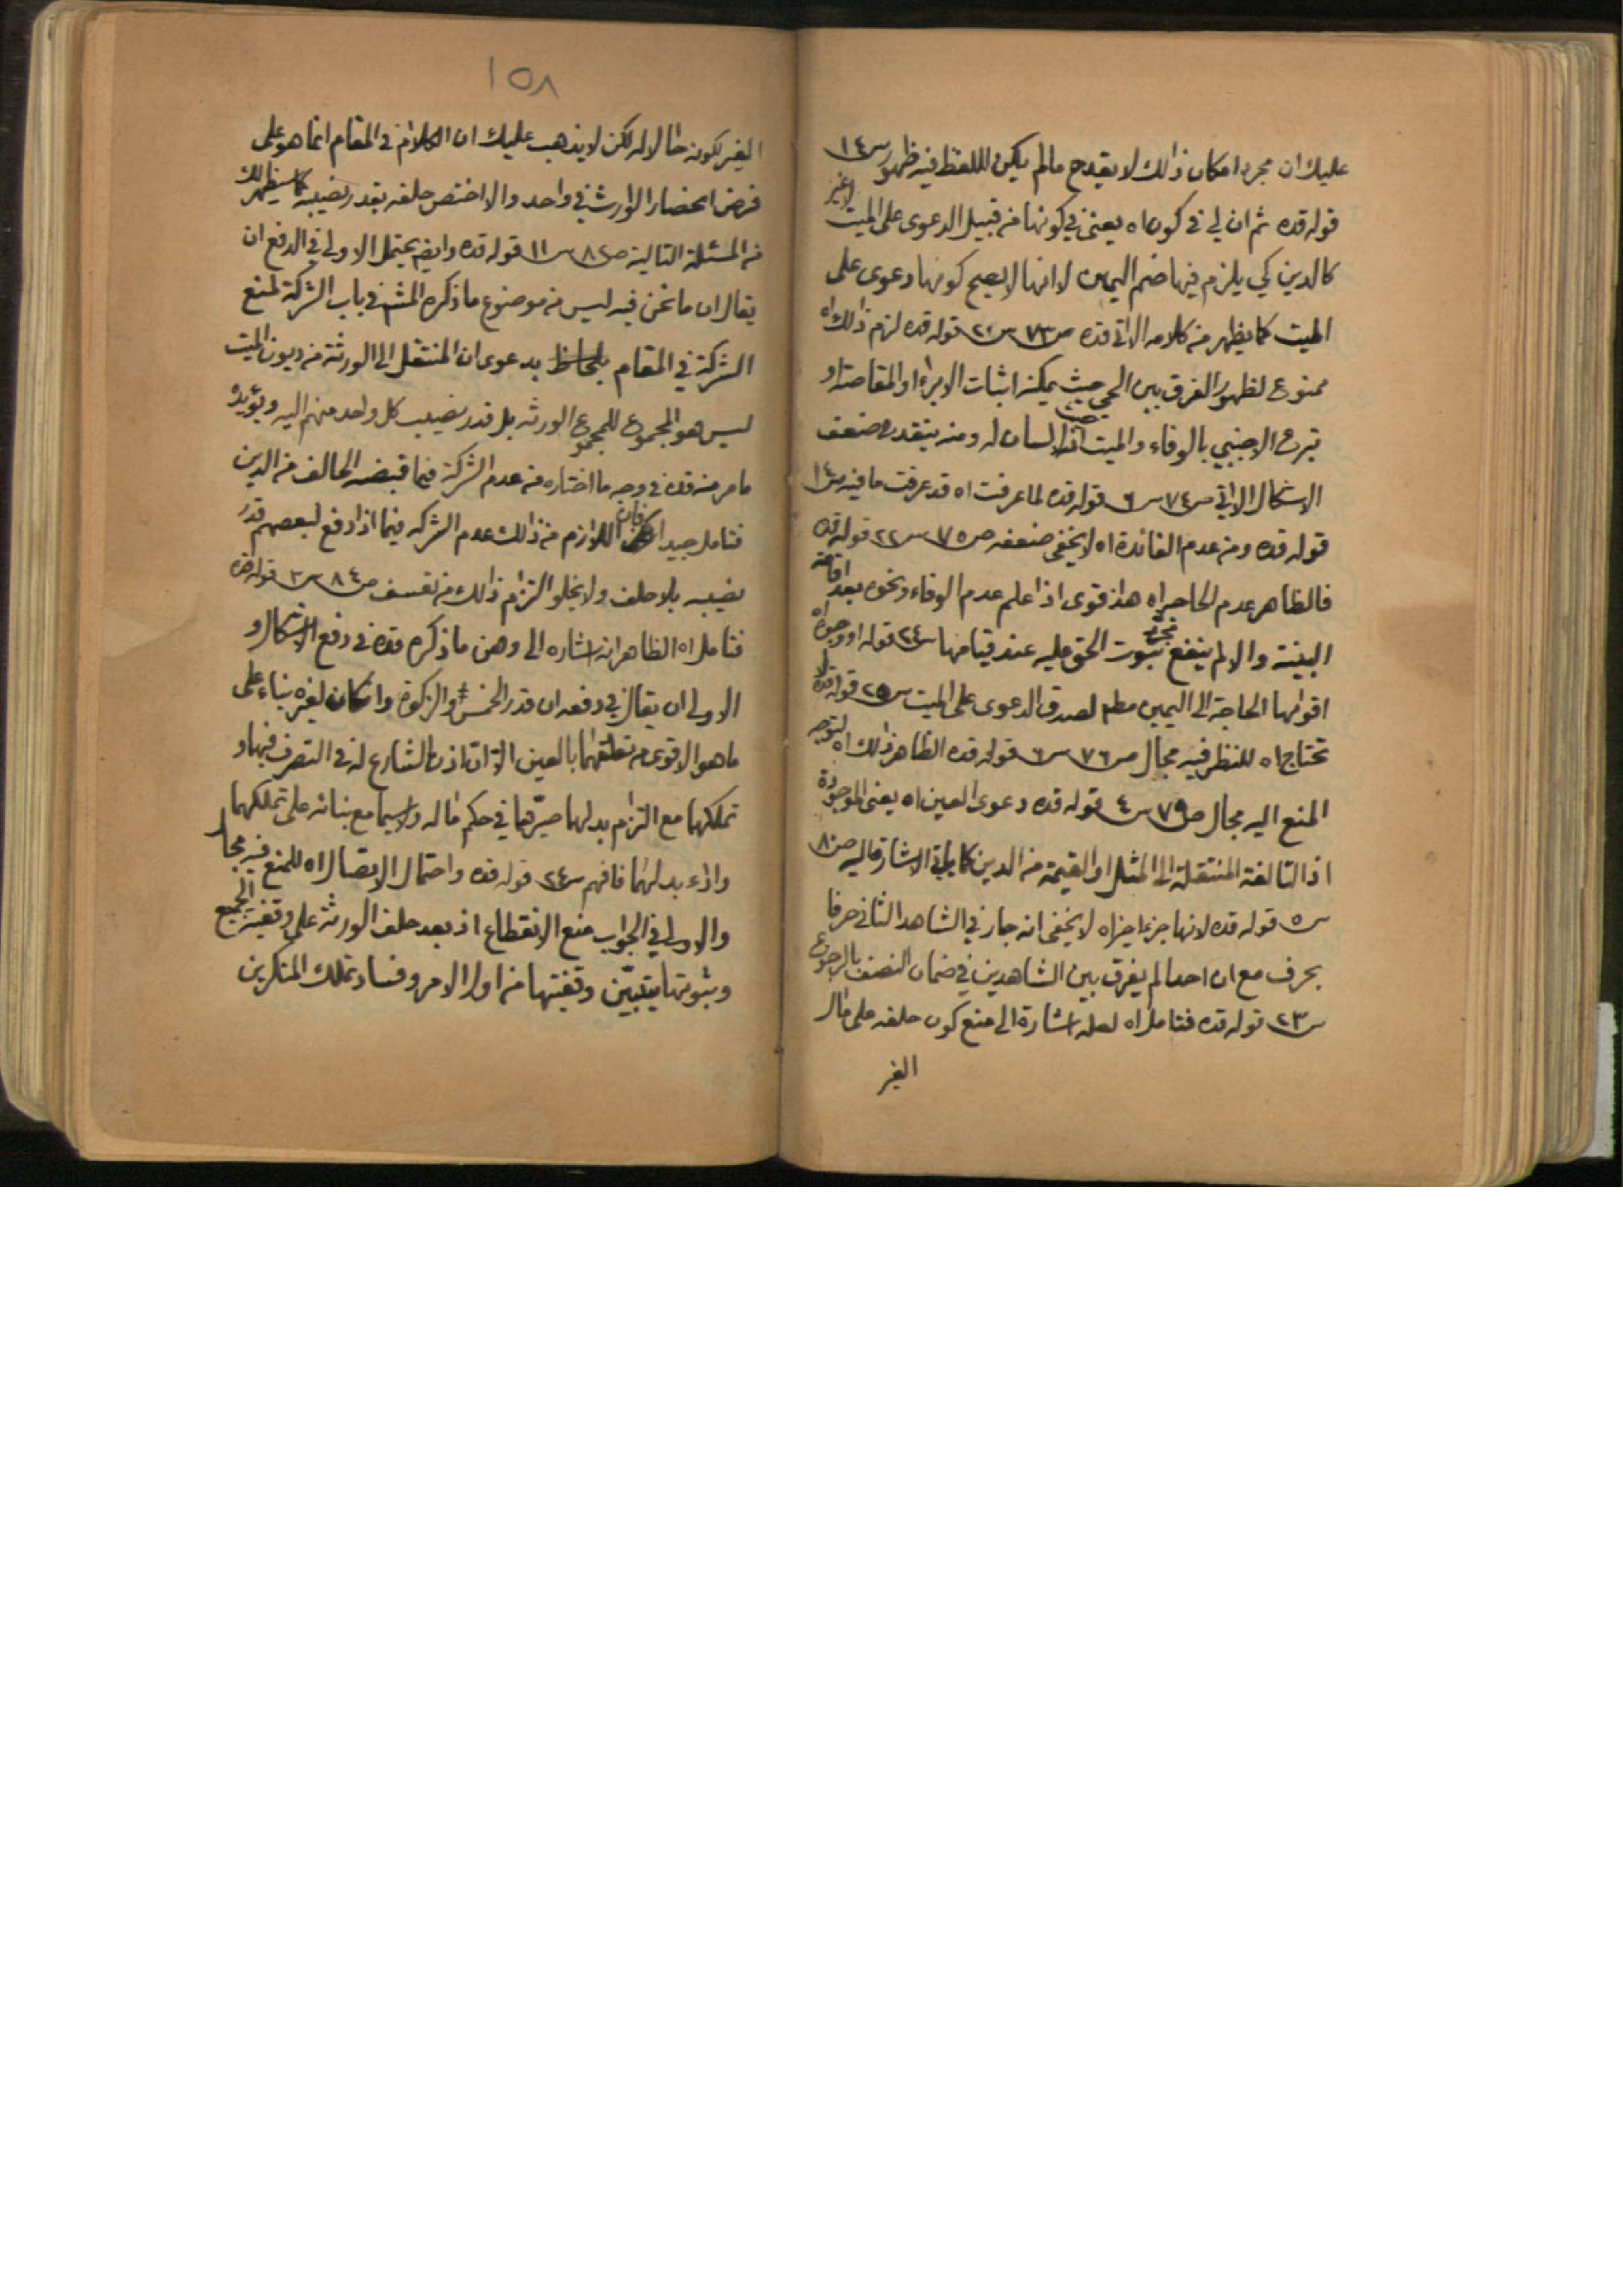 عليك ان مجرد امكان ذالك لا يقدح مالم يكن لللفظ فيه ظهور س١٤
قوله قده ثم ان لي في كون اه يعني في كونها من قبيل الدعوى على الميت لا غير
كالدين كي يلزم فيها ضم اليمين لا انها لا يصح كونها دعوى على
الميت كما يظهر من كلامه الاتي قده ص٧٣ س٢٠ قوله قده لزم ذالك اه
ممنوع لظهور الفرق بين الحي حيث يمكنه اثبات الابراء او المقاصة او
تبرع الاجنبي بالوفاء والميت حيث لا لسان له ومنه ينقدح ضعف
الاشكال الاتي ص٧٤ س٦ قوله قده لما عرفت اه قد عرفت ما فيه س١٤
قوله قده ومن عدم الفائدة اه لا يخفى ضعفه ص٧٥ س٢٢ قوله قده
فالظاهر عدم الحاجة اه هذا قوى اذا علم عدم الوفاء ونحوه بعد اقامة
البينة والا لم ينفع مجرد ثبوت الحق عليه عند قيامها س٢٤ قوله او وجوه اه
اقواها الحاجة الى اليمين مطم لصدق الدعوى على الميت س٢٥ قوله قده لا
تحتاج اه للنظر فيه مجال ص٧٦ س٦ قوله قده الظاهر ذالك اه لتوجه
المنع اليه مجال ص٧٩ س٤ قوله قده دعوى العين اه يعني الموجودة
اذ التالفة المنتقلة الى المثل او القيمة من الدين كما ياتي الاشارة اليه ص٨٠
س٥ قوله قده لانها جزء اخير اه لا يخفى انه جار في الشاهد الثاني حرفا
بحرف مع ان احدا لم يفرق بين الشاهدين في ضمان النصف بالرجوع
س٢٣ قوله قده فتامل اه لعله اشارة الى منع كون حلفه على مال
الغير
١٥٨
الغير لكونه مالا له لكن لا يذهب عليك ان الكلام في المقام انما هو على
فرض انحصار الوارث في واحد والا اختص حلفه بقدر نصيبه كما سيظهر لك
من المسئلة التالية ص٨٢ س١١ قوله قده وايضا يحتمل الاولى في الدفع ان
يقال ان ما نحن فيه ليس من موضوع ما ذكره المشهور في باب الشركة لمنع
الشركة في المقام بدعوى ان المنتقل الى الورثة من ديون الميت
ليس هو المجموع للمجموع الورثه بل قدر نصيب كل واحد منهم اليه ويؤيده
ما مر منه قده في وجه ما اختاره من عدم الشركة فيما قبضه الحالف من الدين
فتامل جيدا فان اللازم من ذالك عدم الشركه فيما اذا دفع لبعضهم قدر
نصيبه بلا حلف ولا يخلو التزام ذالك من تعسف ص٨٤ س٣ قوله قده
فتامل اه الظاهر انه اشاره الى وهن ما ذكره قده في دفع الاشكال و
الاولى ان يقال في دفعه ان قدر الخمس والزكوة وان كان لغيره بناء على
ما هو الاقوى من تعلقهما بالعين الا ان اذن الشارع له في التصرف فيها و
تملكها مع التزام بدلها صيرهما في حكم ماله ولا سيما مع بنائه على تملكهما
واداء بدلهما فافهم س٢٤ قوله قده واحتمال الاتصال اه للمنع فيه مجال
والاولى في الجواب منع الانقطاع اذ بعد حلف الورثة على وقفية الجميع
وثبوتها يتبين وقفيتها من اول الامر وفساد تملك المنكرين